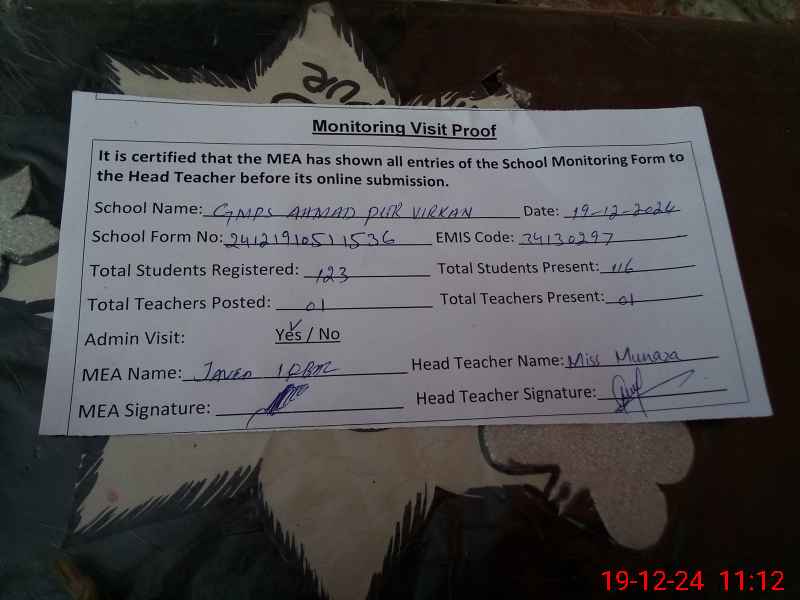 Monitoring Visit Proof
It is certified that the MEA has shown all entries of the School Monitoring Form to
the Head Teacher before its online submission.
School Name: GMPS AHMAD PUR VIRKAN Date: 19-12-2024
School Form No: 24121910511536 EMIS Code: 34130297
Total Students Registered: 123 Total Students Present: 116
Total Teachers Posted: 01 Total Teachers Present: 01
Admin Visit: Yes / No
MEA Name: JAVED IQBAL Head Teacher Name: Miss Munaza
MEA Signature: Head Teacher Signature:
19-12-24 11:12